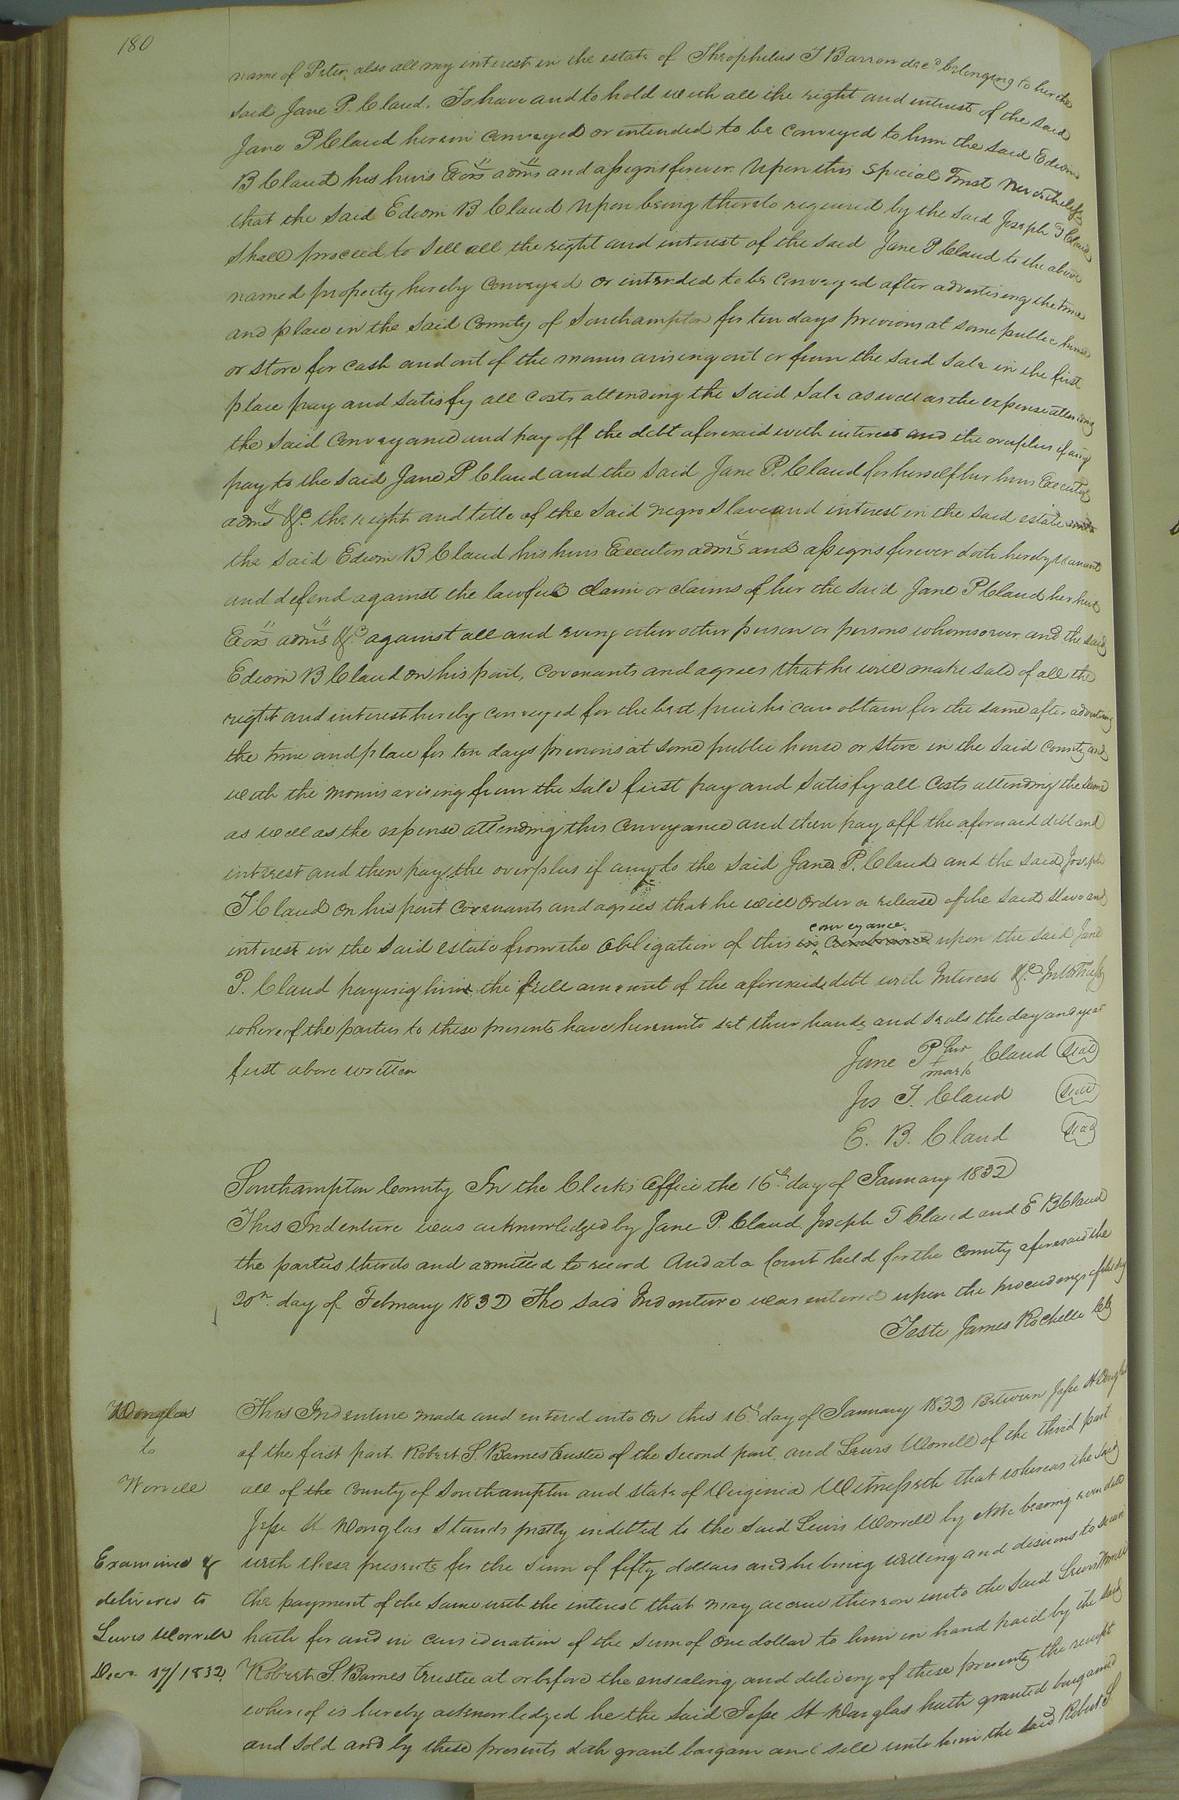 180
name of Peter, also all my interest in the estate of Theophilus T Barron decd belonging to her the
said Jane P. Claud. To have and to hold with all the right and interest of the said
Jane P Claud herein conveyed or intended to be conveyed to him the said Edwin
B Claud his heirs Exors adms and assigns forever. Upon this special Trust Nevertheless
that the said Edwin B Claud upon being thereto required by the said Joseph T Claud
shall proceed to sell all the right and interest of the said Jane P Claud to the above
named property hereby conveyed or intended to be conveyed after advertising the time
and place in the said County of Southampton for ten days previous at some public house
or store for cash and out of the monies arising out or from the said sale in the first
place pay and satisfy all costs attending the said sale as well as the expense attending
the said conveyance and pay off the debt aforesaid with interest and the overplus if any
pay to the said Jane P Claud and the said Jane P. Claud for herself her heirs Executors
adms &c. the right and title of the said negro slave and interest in the said estate
the said Edwin B Claud his heirs Executors adms and assigns forever doth hereby warrant
and defend against the lawful claim or claims of her the said Jane P Claud her heirs
Exors adms &c against all and every other other person or persons whomsoever and the said
Edwin B Claud on his part, covenants and agrees that he will make sale of all the
right and interest hereby conveyed for the best price he can obtain for the same after advertising
the time and place for ten days previous at some public house or store in the said County and
with the monies arising from the sale first pay and satisfy all costs attending the same
as well as the expense attending this conveyance and then pay off the aforesaid debt and
interest and then pay the overplus if any to the said Jane P. Claud and the said Joseph
T Claud on his part covenants and agrees that he will order a release of the said slave and
conveyance
interest in the said estate from the obligation of this upon the said Jane
P. Claud paying him the full amount of the aforesaid debt with Interest &c In testimony
whereof the parties to these presents have hereunto set their hands and seals the day and year
first above written
Jane P her + mark Claud (seal)
Jos T. Claud (seal)
E. B. Claud (seal)
Southampton County In the Clerks Office the 16th day of January 1832
This Indenture was acknowledged by Jane P. Claud Joseph T Claud and E B Claud
the parties thereto and admitted to record And at a Court held for the County aforesaid the
20th day of February 1832 The said Indenture was entered upon the proceedings of the day
Teste James Rochelle Clk
Douglas
to
Worrell
Examined &
delivered to
Lewis Worrell
Decr. 17/1832
This Indenture made and entered into on this 16th day of January 1832 Between Jesse H Douglas
of the first part Robert S. Barnes trustee of the second part, and Lewis Worrell of the third part
all of the County of Southampton and State of Virginia Witnesseth that whereas the said
Jesse H Douglas stands justly indebted to the said Lewis Worrell by note bearing even date
with these presents for the sum of fifty dollars and he being willing and desirous to secure
the payment of the same with the interest that may accrue thereon unto the said Lewis Worrell
hath for and in consideration of the sum of one dollar to him in hand paid by the said
Robert S. Barnes trustee at or before the ensealing and delivery of these presents, the receipt
whereof is hereby acknowledged he the said Jesse H Douglas hath granted bargained
and sold and by these presents doth grant bargain and sell unto him the said Robert S